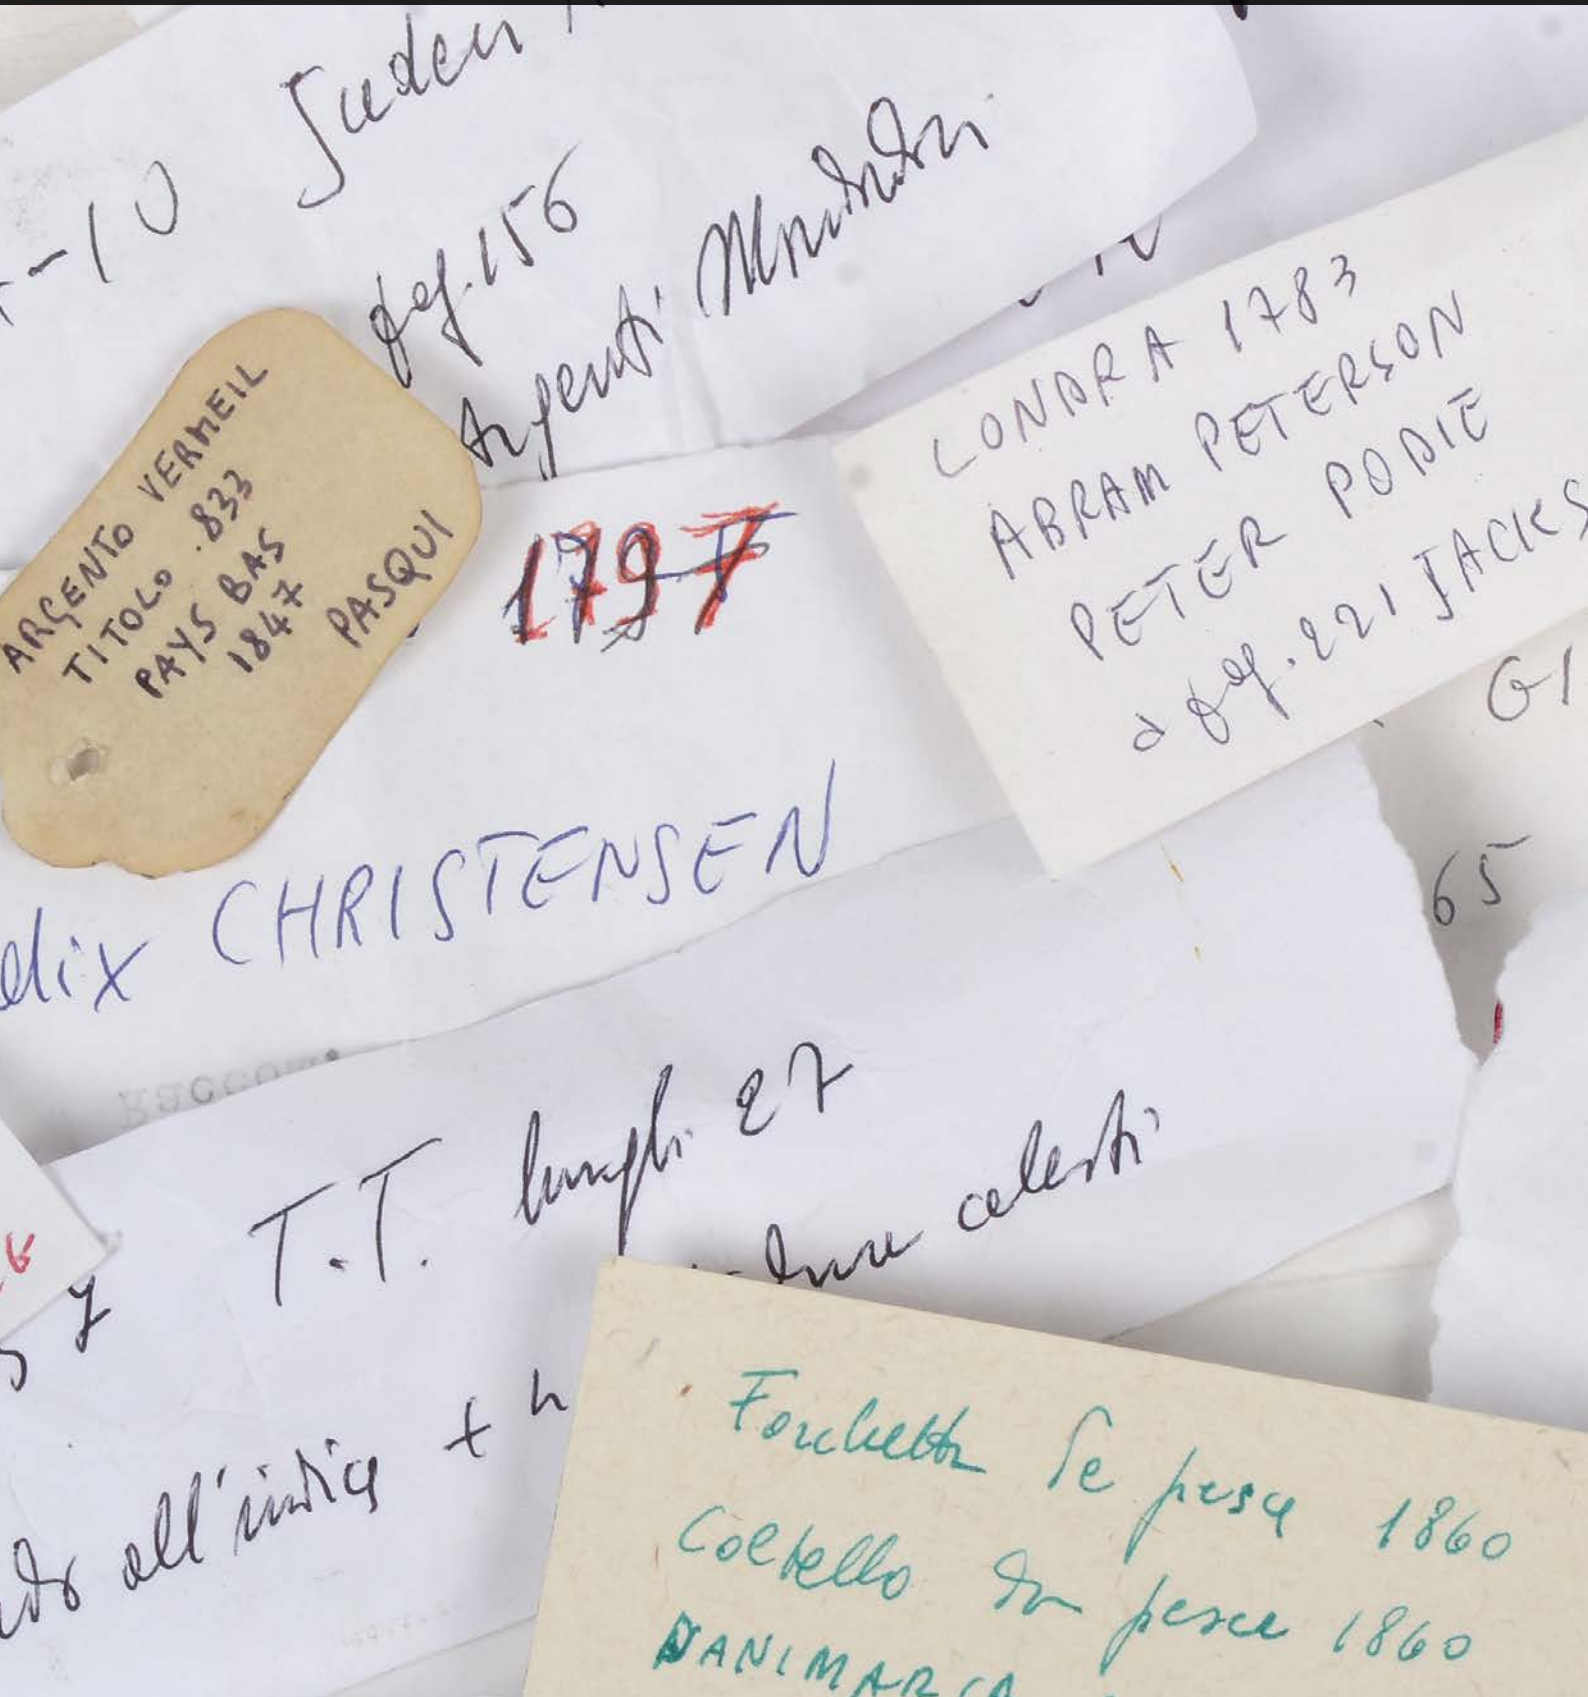 -10
pag. 156
Argenti
ARGENTO VERMEIL
TITOLO .833
PAYS BAS
1847
PASQUI
1797
LONDRA 1783
ABRAM PETERSON
PETER PODIE
a pag. 221 JACKS
GI
65
elix CHRISTENSEN
Raccom
T.T. lunghi 27
celesti
all'indice +
Forchetta de pesce 1860
Coltello da pesce 1860
DANIMARCA